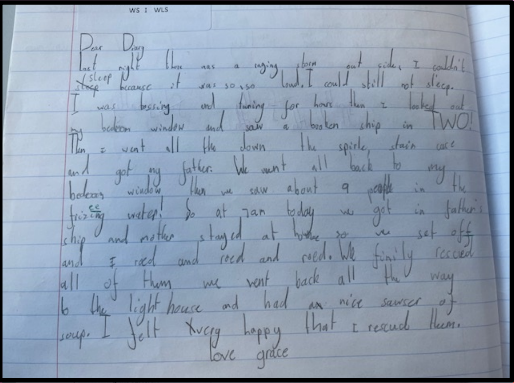 WS : WLS
Dear Diary
last night there was a raging storm out side, I couldn't
sleep because it was so, so loud. I could still not sleep.
I was tossing and turning for hours then I looked out
my bedroom window and saw a broken ship in TWO!
Then I went all the down the spirle stair case
and got my father. We went all back to my
bedroom window then we saw about 9 people in the
frizing water! So at 7am today we got in father's
ship and mother stayed at home so we set off
and I roed and roed and roed. We finily rescued
all of them we went back all the way
to the light house and had nice sawser of
soup. I felt very happy that I rescud them.
love grace